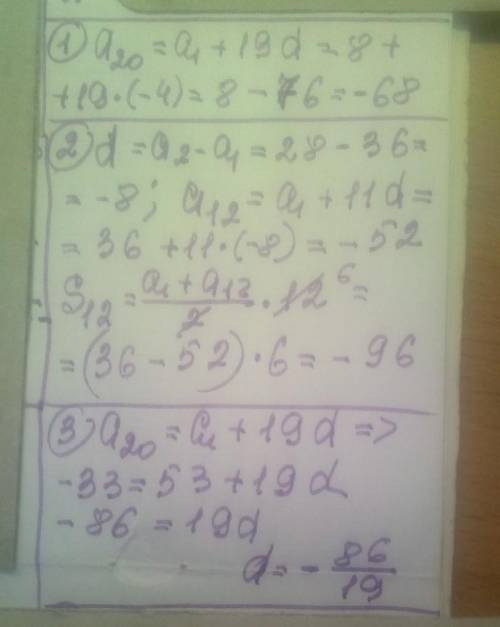 1) a₂₀ = a₁ + 19d = 8 +
+ 19 · (-4) = 8 - 76 = -68
2) d = a₂ - a₁ = 28 - 36 =
= -8; a₁₂ = a₁ + 11d =
= 36 + 11 · (-8) = -52
S₁₂ = (a₁ + a₁₂)/2 · 12 ⁶ =
= (36 - 52) · 6 = -96
3) a₂₀ = a₁ + 19d =>
-33 = 53 + 19d
-86 = 19d
d = - 86/19